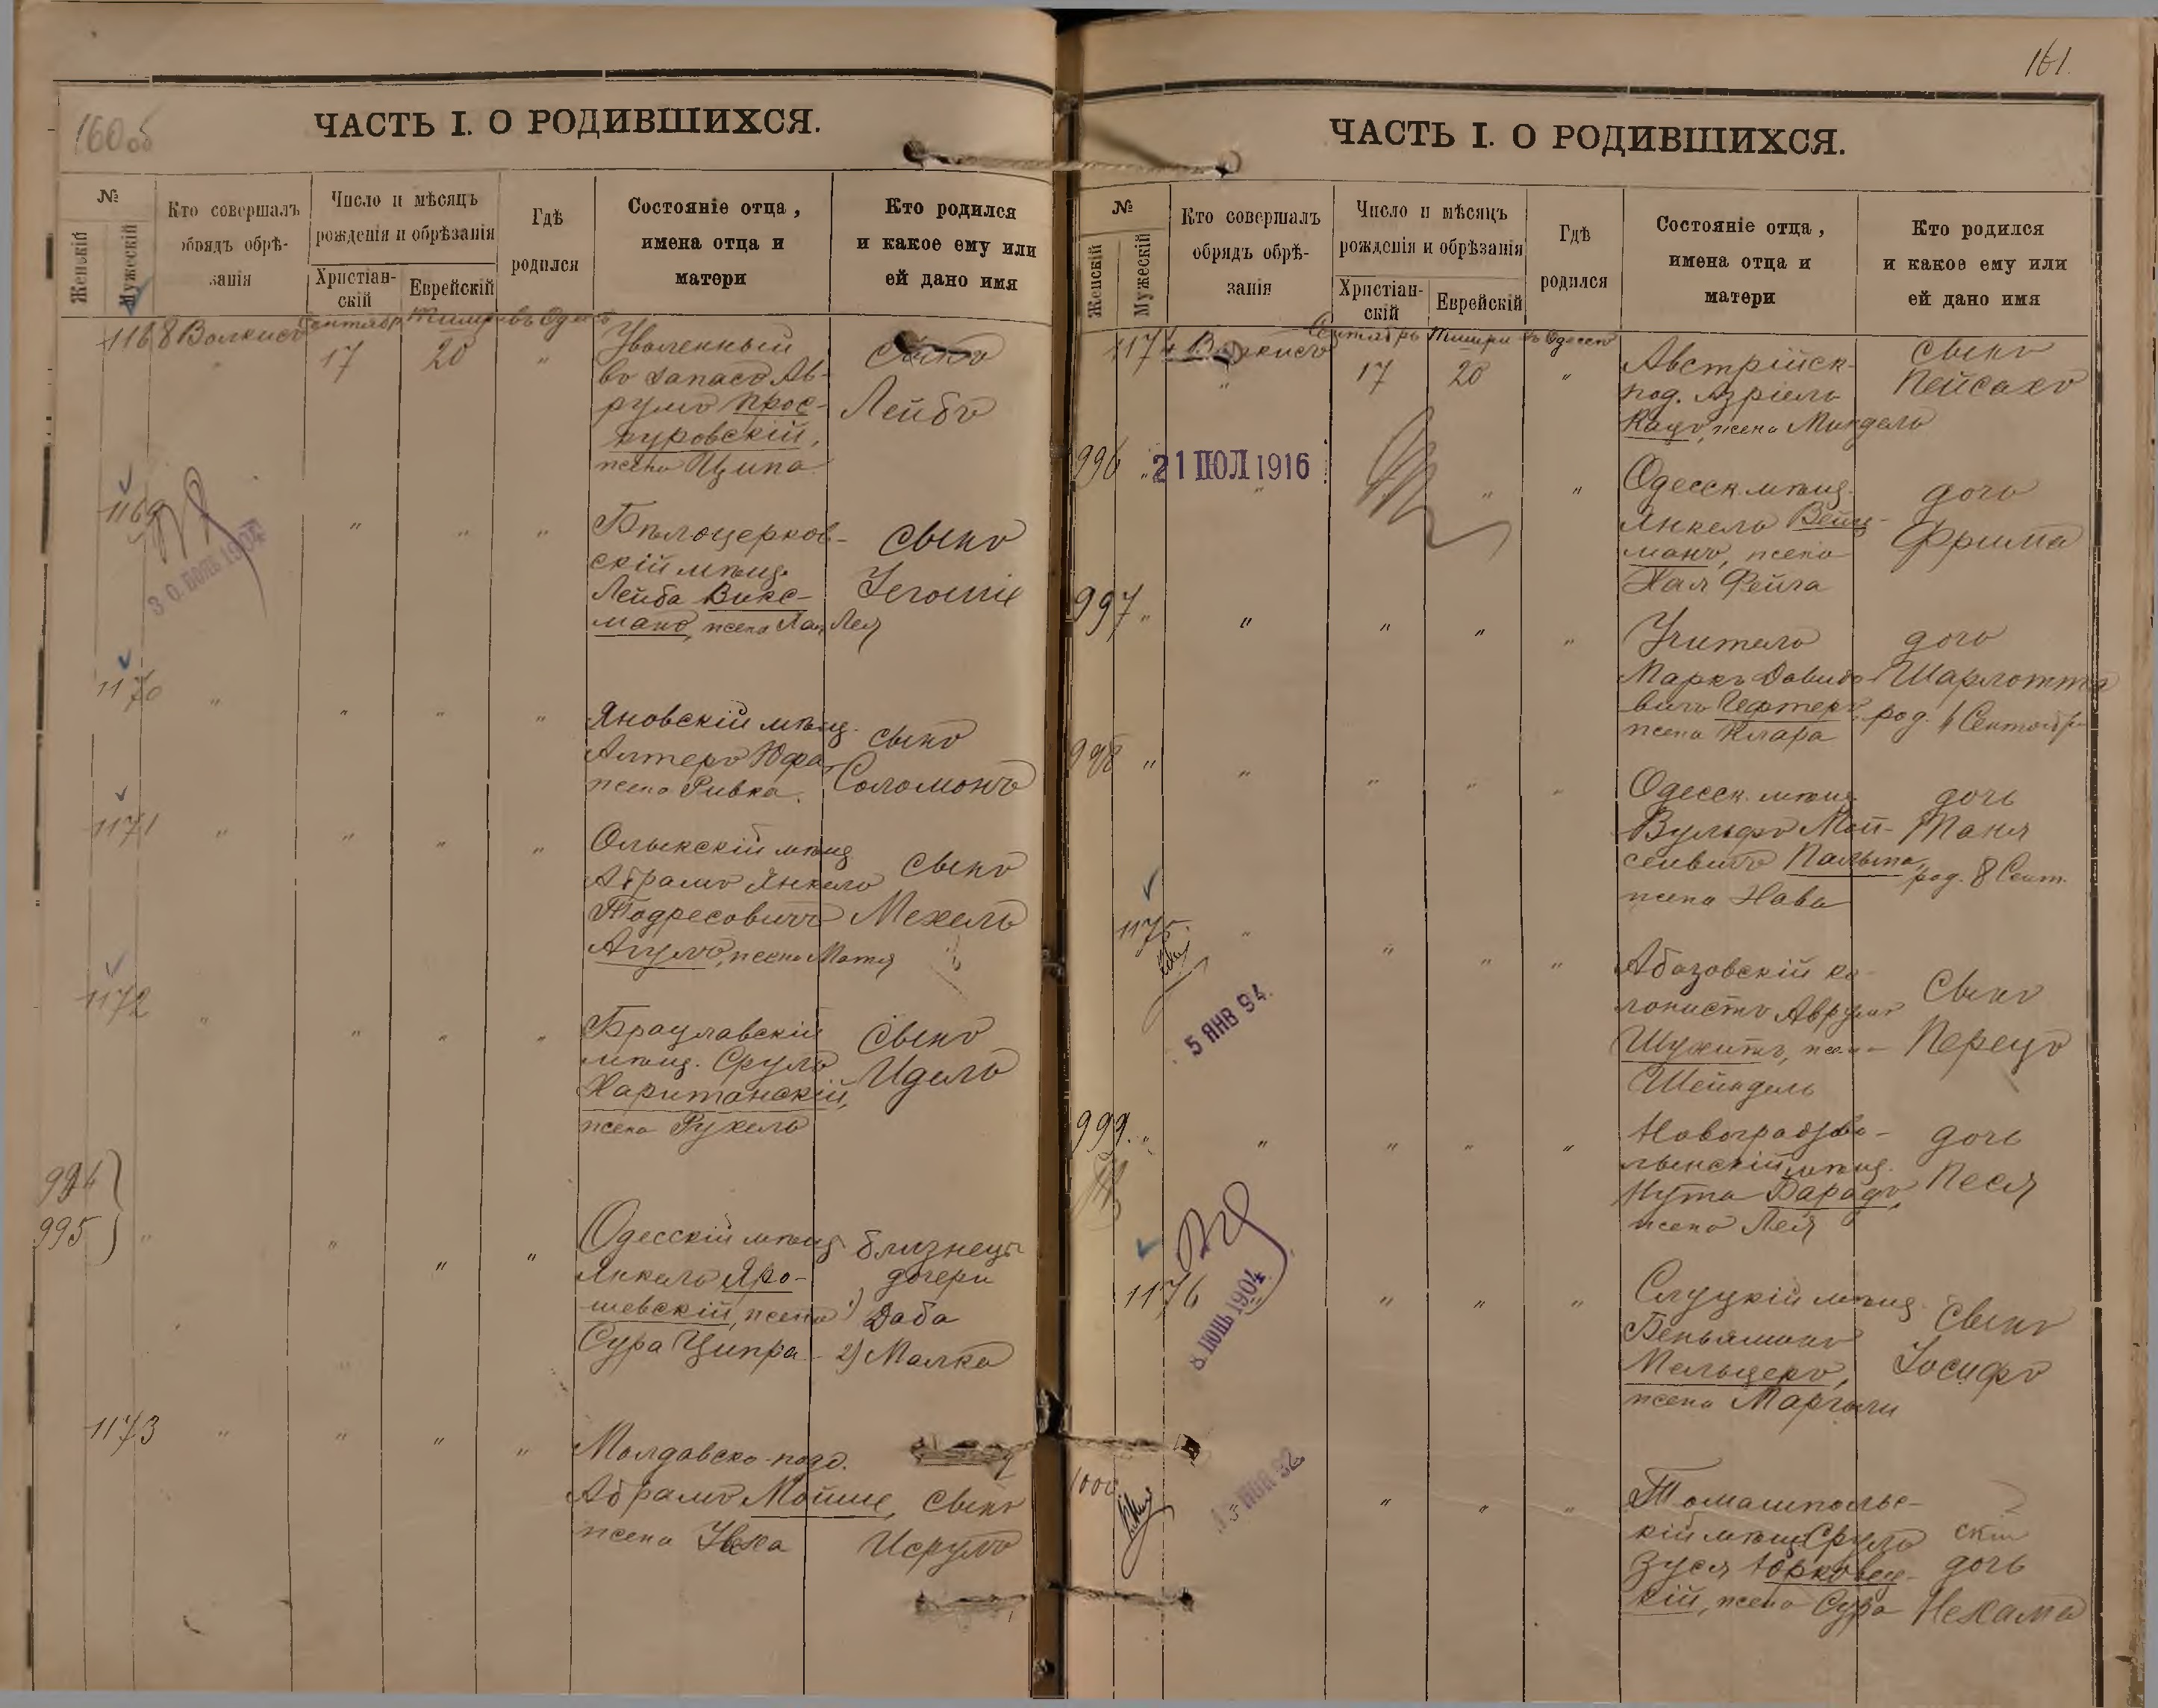 160об
ЧАСТЬ I. О РОДИВШИХСЯ.
№
Женскій
Мужескій
Кто совершалъ
обрядъ обрѣ-
занія
Число и мѣсяцъ
рожденія и обрѣзанія
Христіан-
скій
Еврейскій
Гдѣ
родился
Состояніе отца,
имена отца и
матери
Кто родился
и какое ему или
ей дано имя
1168 Волкисъ Сентябр Тишри въ Одессѣ
" 17 20 "
Уволенный
въ запасъ Ав-
румъ Прос-
куровскій,
жена Ципа
Сынъ
Лейбъ
1169
30 ІЮЛЬ 1904
" " "
Бѣлоцерков-
скій мѣщ.
Лейба Викс-
манъ, жена Хая Лея
сынъ
Іегошіе
1170 " " " "
Яновскій мѣщ.
Алтеръ Юфа,
жена Ривка.
сынъ
Соломонъ
1171 " " " "
Олыкскій мѣщ.
Абрамъ Янкель
Тодресовичъ
жена Матя
сынъ
Мехель
1172 " " " "
Брацлавскій
мѣщ. Сруль
Харитонскій,
жена Рухель
Сынъ
Идель
994
995 " " " "
Одесскій мѣщ.
Янкель Яро-
шевскій, жена
Сура Ципра
близнецы
дочери
1) Даба
2) Малка
1173 " " " "
Молдавско-под.
Абрамъ Мойше,
жена
Сынъ
Исруль
161.
ЧАСТЬ I. О РОДИВШИХСЯ.
№
Женскій
Мужескій
Кто совершалъ
обрядъ обрѣ-
занія
Число и мѣсяцъ
рожденія и обрѣзанія
Христіан-
скій
Еврейскій
Гдѣ
родился
Состояніе отца,
имена отца и
матери
Кто родился
и какое ему или
ей дано имя
1174 Волкисъ Сентябрь Тишри въ Одессѣ
" 17 20 "
Австрійск-
под. Азріель
Кацъ, жена Миндель
Сынъ
Пейсахъ
996 " 21 ІЮЛ 1916
" " "
Одесск. мѣщ.
Янкель Вейц-
манъ, жена
Хая Фейга
дочь
Фрима
997 " " " " "
Учитель
Маркъ Давидо-
вичъ Гефтеръ,
жена Клара
дочь
Шарлотта
род. 4 Сентября
998 " " " " "
Одесск. мѣщ.
Вульфъ Мой-
сеевичъ
жена Хава
дочь
Таня
род. 8 Сент.
1175. " " " "
5 ЯНВ 94.
Абазовскій ко-
лонистъ Аврумъ
жена
Шейндель
Сынъ
Перецъ
999. " " " " "
Новоградъво-
лынскій мѣщ.
Нута Барадъ,
жена Лея
дочь
Песя
1176 " " "
8 ІЮНЬ 1904
Слуцкій мѣщ.
Беньяминъ
Мельцеръ,
жена Маргали
Сынъ
Іосифъ
1000 " " "
Томашполь-
скій мѣщ. Сруль
Зуся Юрковец-
кій, жена Сура
дочь
Нехама